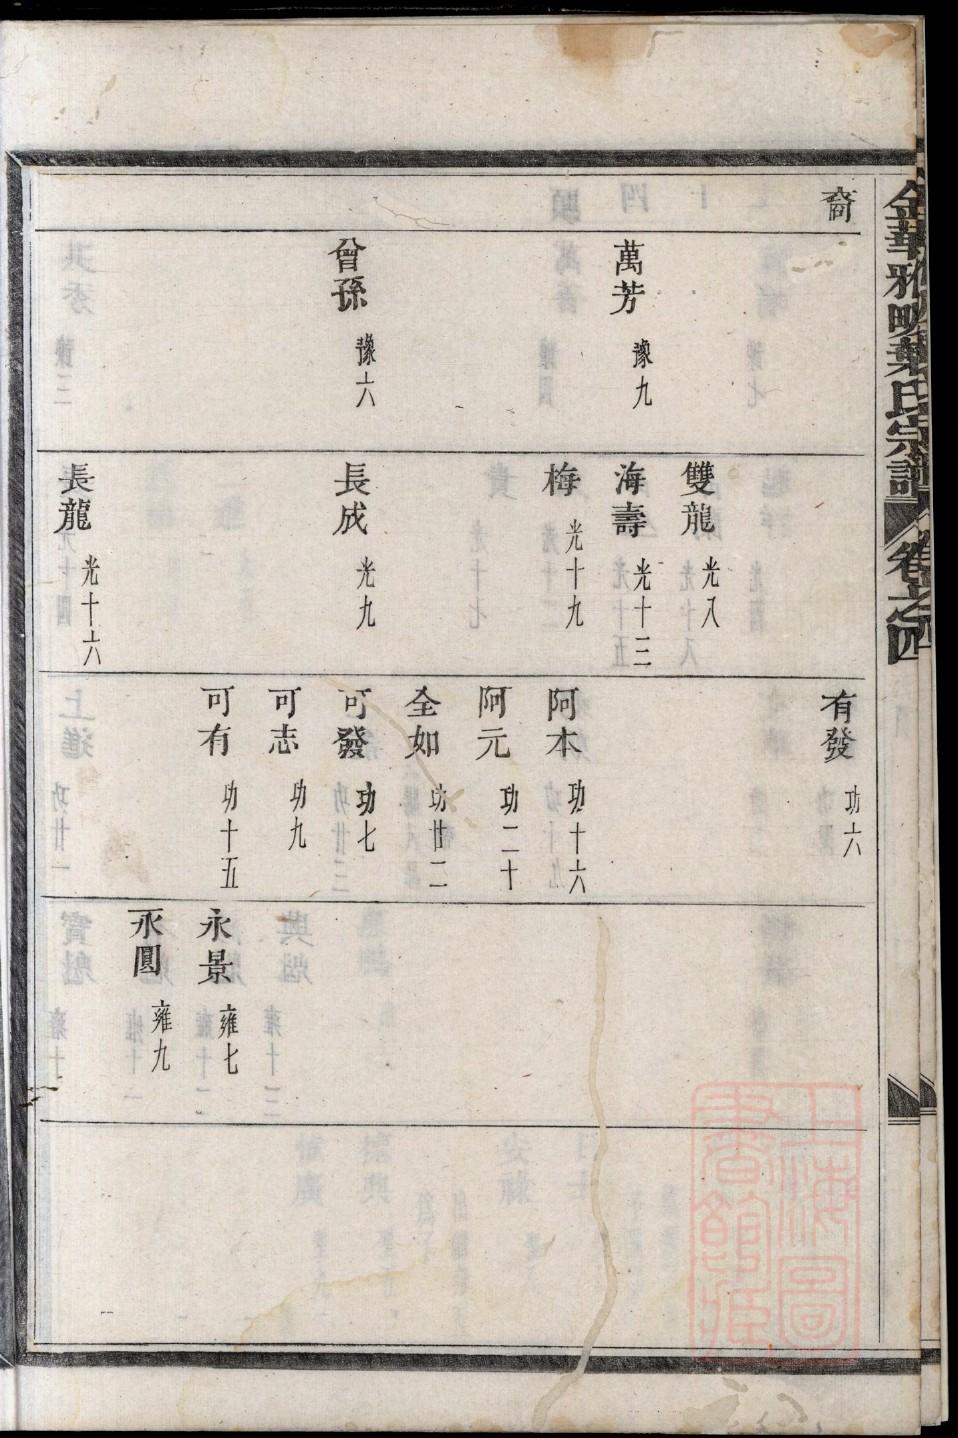 金華雅畈葉氏宗譜 卷之四
裔
萬芳 豫九
曾孫 豫六
雙龍 光八
海壽 光十三
梅 光十九
長成 光九
長龍 光十六
有發 功六
阿本 功十六
阿元 功二十
全如 功廿二
可發 功七
可志 功九
可有 功十五
永景 雍七
永圓 雍九
上海圖書館藏